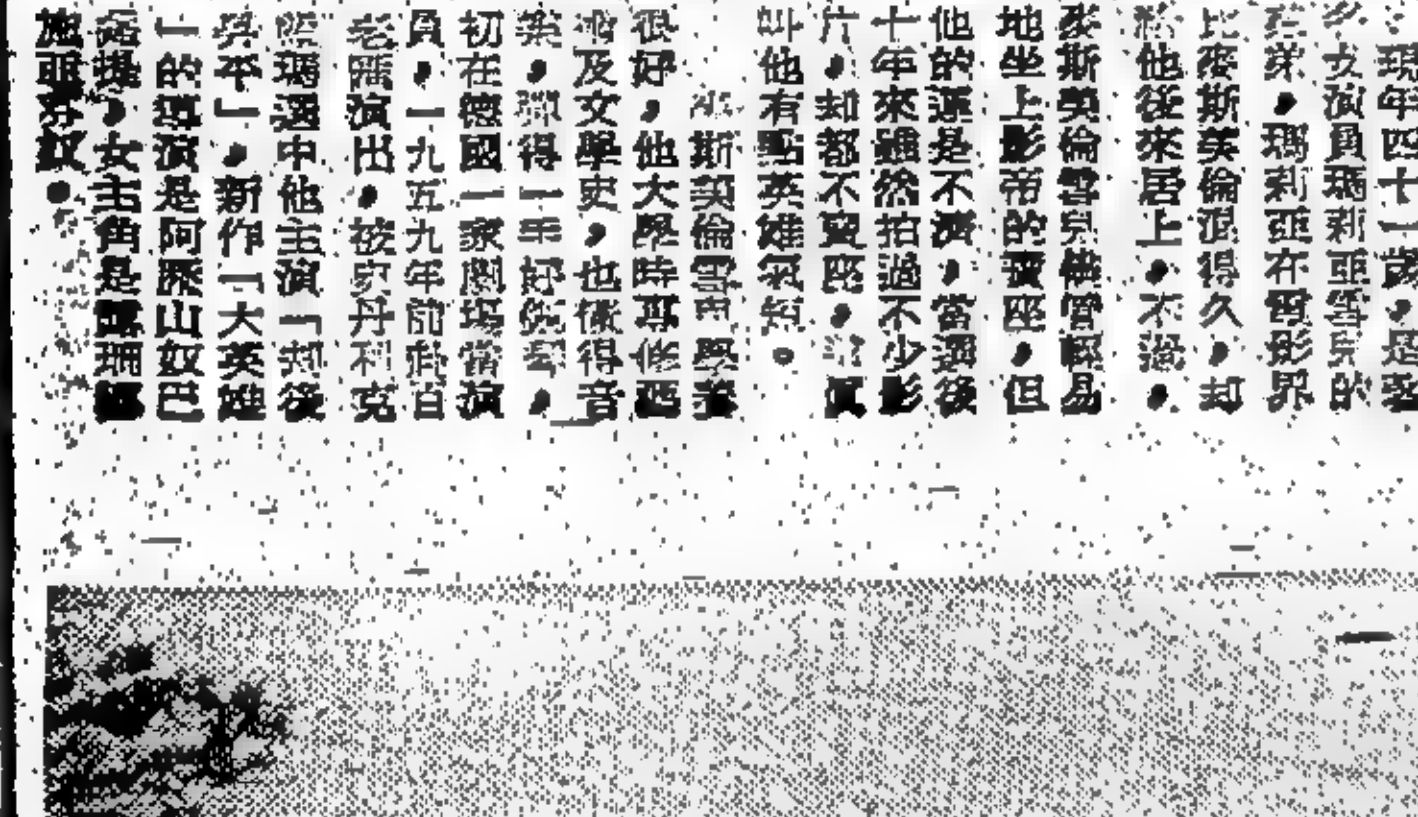 現年四十一歲，是
女演員瑪莉亞雪兒的
弟，瑪莉亞在電影界
比麥斯英倫混得久，却
他後來居上，不過，
麥斯英倫雪兒雖曾輕易
地坐上影帝的寶座，但
他的運是不濟，當選後
十年來雖然拍過不少影
片，却都不賣座，
叫他有點英雄氣短。
斯英倫雪 學養
很好，他大學時專修西
及文學史，也懂得音
樂，彈得一手好鋼琴，
初在德國一家劇場當演
員，一九五九年前赴百
老匯演出，被史丹利克
瑪選中他主演「却後
昇平」，新作「大英雄
」的導演是阿 山奴巴
，女主角是 珊
施亞芬奴。